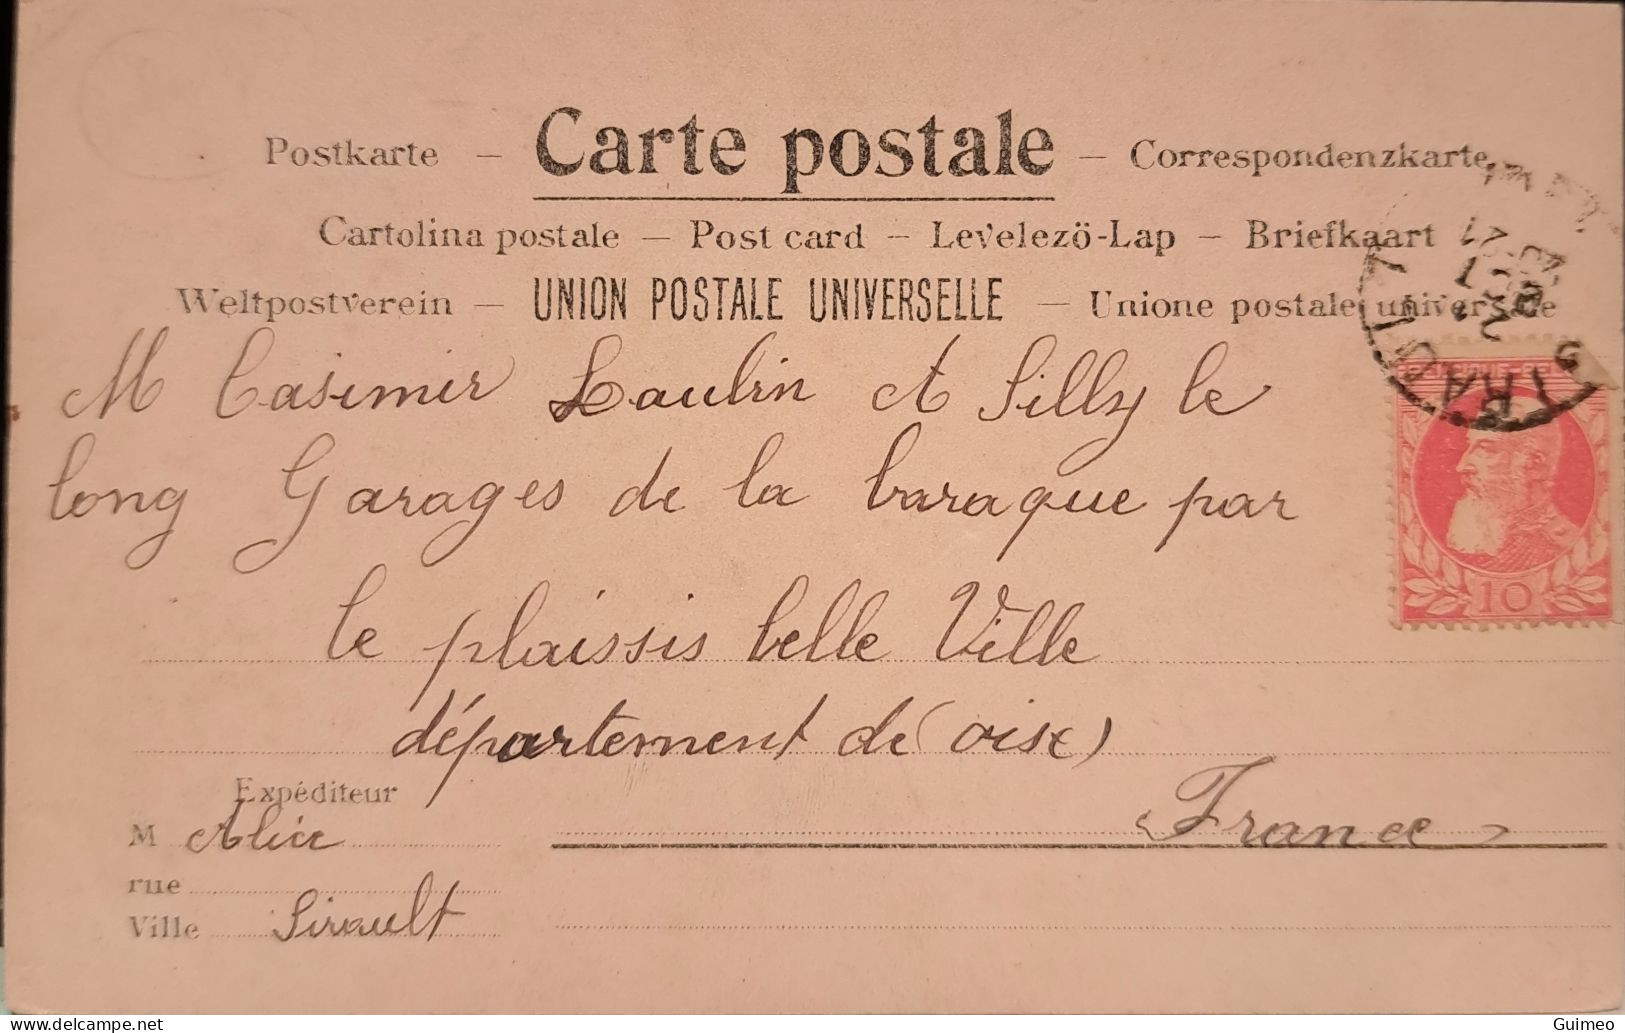 Postkarte – Carte postale – Correspondenzkarte
Cartolina postale – Post card – Levelezö-Lap – Briefkaart
Weltpostverein – UNION POSTALE UNIVERSELLE – Unione postale universale
M Casimir Laulin A Silly le
long Garages de la baraque par
le plaissis belle Ville
département de (oise)
(France)
Expéditeur
M Alice
rue
Ville Sirault
10
Guimeo